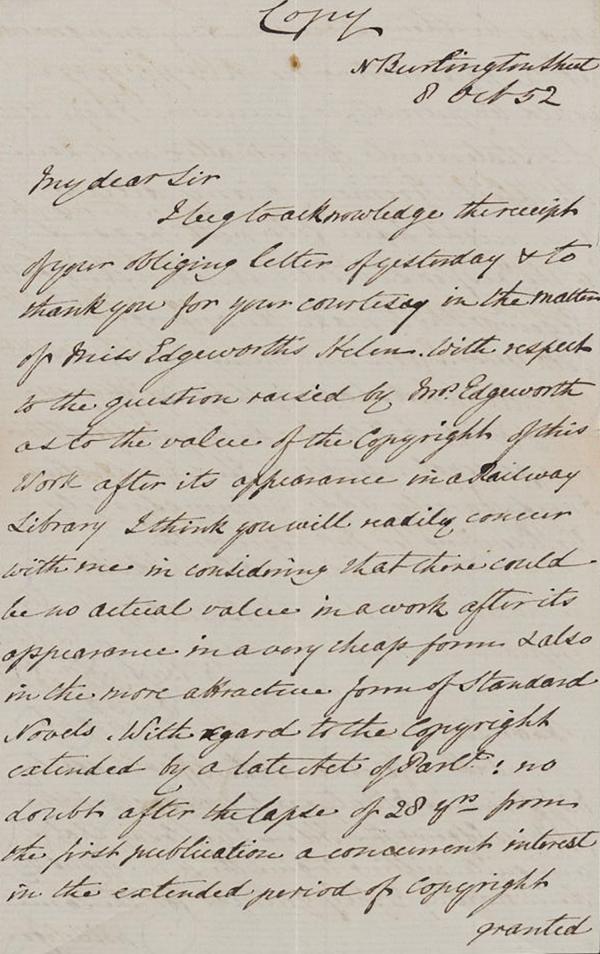 Copy
N Burlington Street
8 Oct 52
My dear Sir
I beg to acknowledge the receipt
of your obliging letter of yesterday & to
thank you for your courtesy in the matter
of Miss Edgeworth's Helen. With respect
to the question raised by Mrs. Edgeworth
as to the value of the Copyright of this
Work after its appearance in a Railway
Library I think you will readily concur
with me in considering that there could
be no actual value in a work after its
appearance in a very cheap form & also
in the more attractive form of Standard
Novels. With regard to the Copyright
extended by a late Act of Parlt: no
doubt after the lapse of 28 yrs from
the first publication a concurrent interest
in the extended period of Copyright
granted